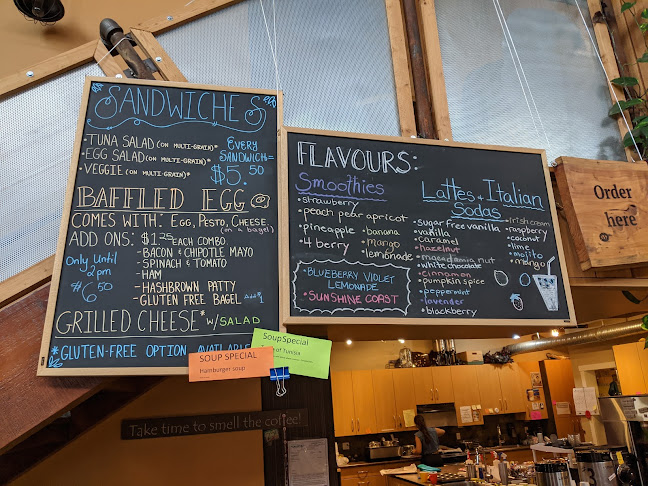 SANDWICHES
• TUNA SALAD (ON MULTI-GRAIN)*
• EGG SALAD (ON MULTI-GRAIN)*
• VEGGIE (ON MULTI-GRAIN)*
EVERY
SANDWICH=
$5.50
BAFFLED EGG @
COMES WITH: EGG, PESTO, CHEESE
(on a bagel)
ADD ONS: $1.25 EACH COMBO
- BACON & CHIPOTLE MAYO
- SPINACH & TOMATO
- HAM
- HASHBROWN PATTY
- GLUTEN FREE BAGEL
Only Until
2pm
$6.50
GRILLED CHEESE* W/ SALAD
*GLUTEN-FREE OPTION AVAILABLE
SOUP SPECIAL
Hamburger Soup
Soup Special
of Tunisia
FLAVOURS:
Smoothies
• strawberry
• peach pear apricot
• pineapple
• 4 berry
• banana
• mango
• lemonade
• BLUEBERRY VIOLET
LEMONADE
• SUNSHINE COAST
Lattes + Italian
Sodas
• sugar free vanilla
• vanilla
• caramel
• hazelnut
• macadamia nut
• white chocolate
• cinnamon
• pumpkin spice
• peppermint
• lavender
• blackberry
• irish cream
• raspberry
• coconut
• lime
• mojito
• mango
Order
here
Take time to smell the coffee!
3